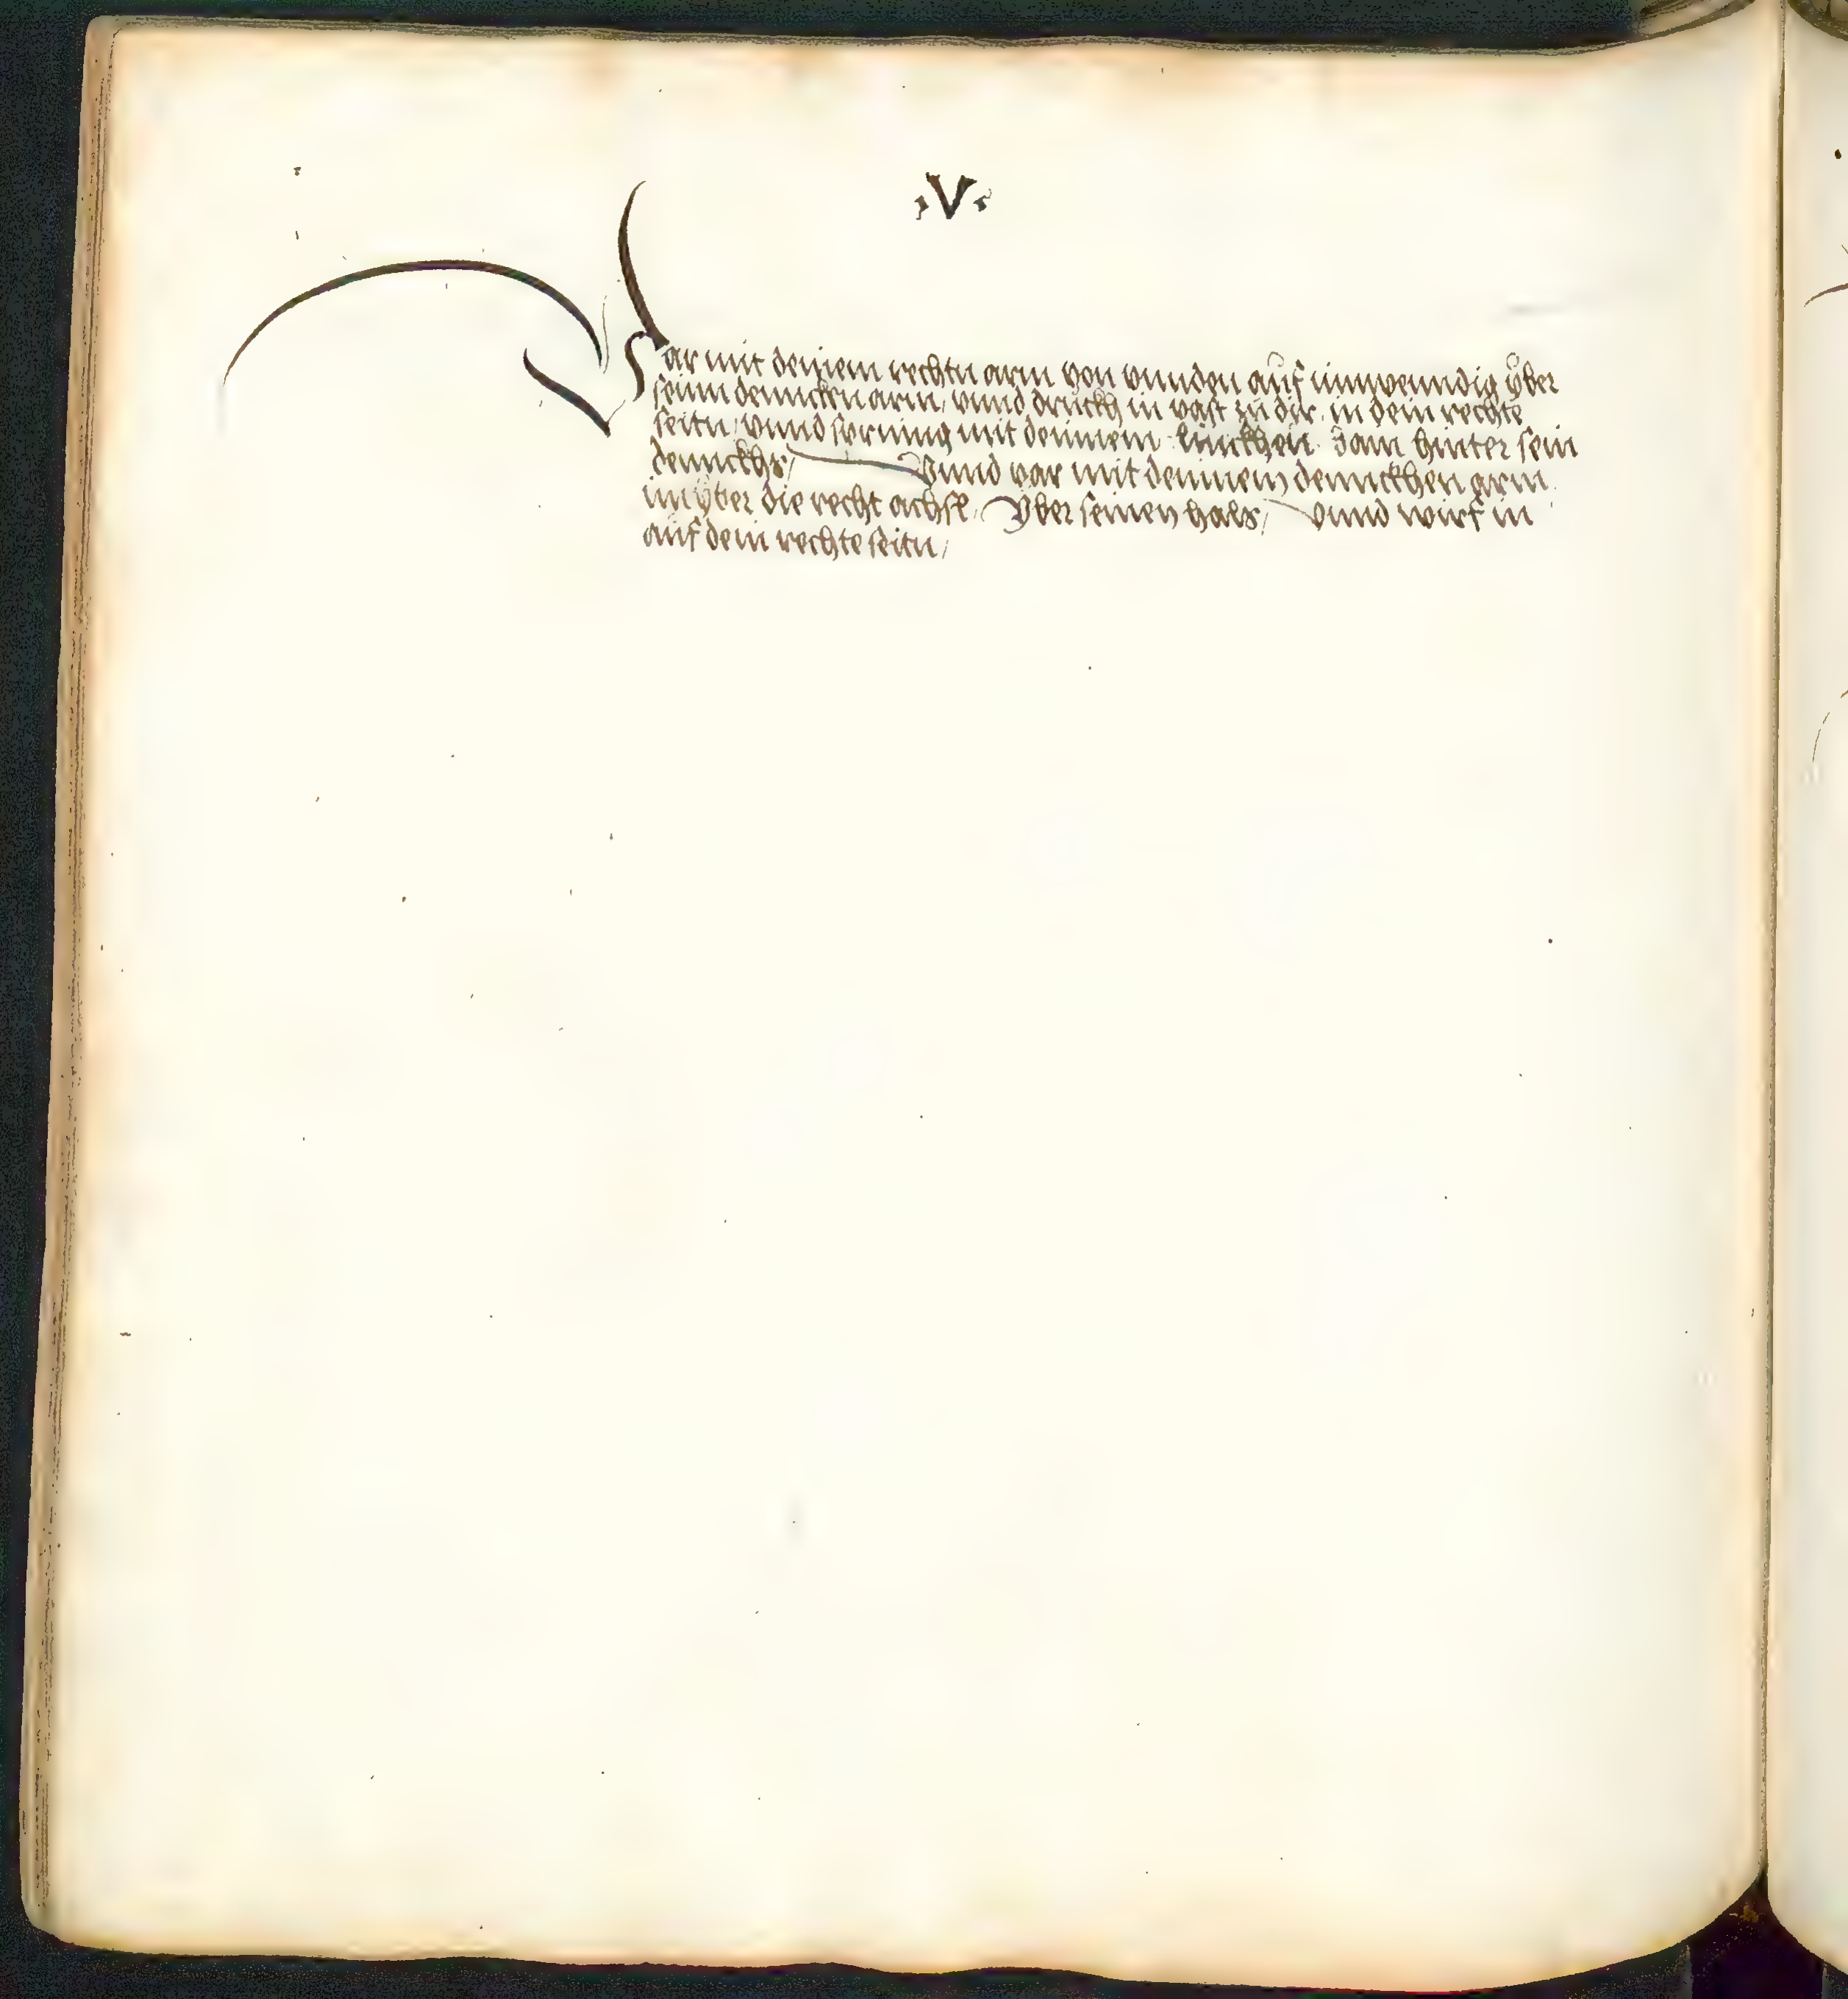 ·V·
Var mit deinem rechtn arm von vnnden auf innwenndig v̈ber
seinn dennckn arm, vnnd druckh in vast zu dir, in dein rechte
seitn, vnnd sprning mit deinnem linckhen pain hinter sein
dennckhs, Vnnd var mit deinnem dennckhen arm
im v̈ber die recht achsl, V̈ber seinen hals, vnnd wirf in
auf dein rechte seitn,